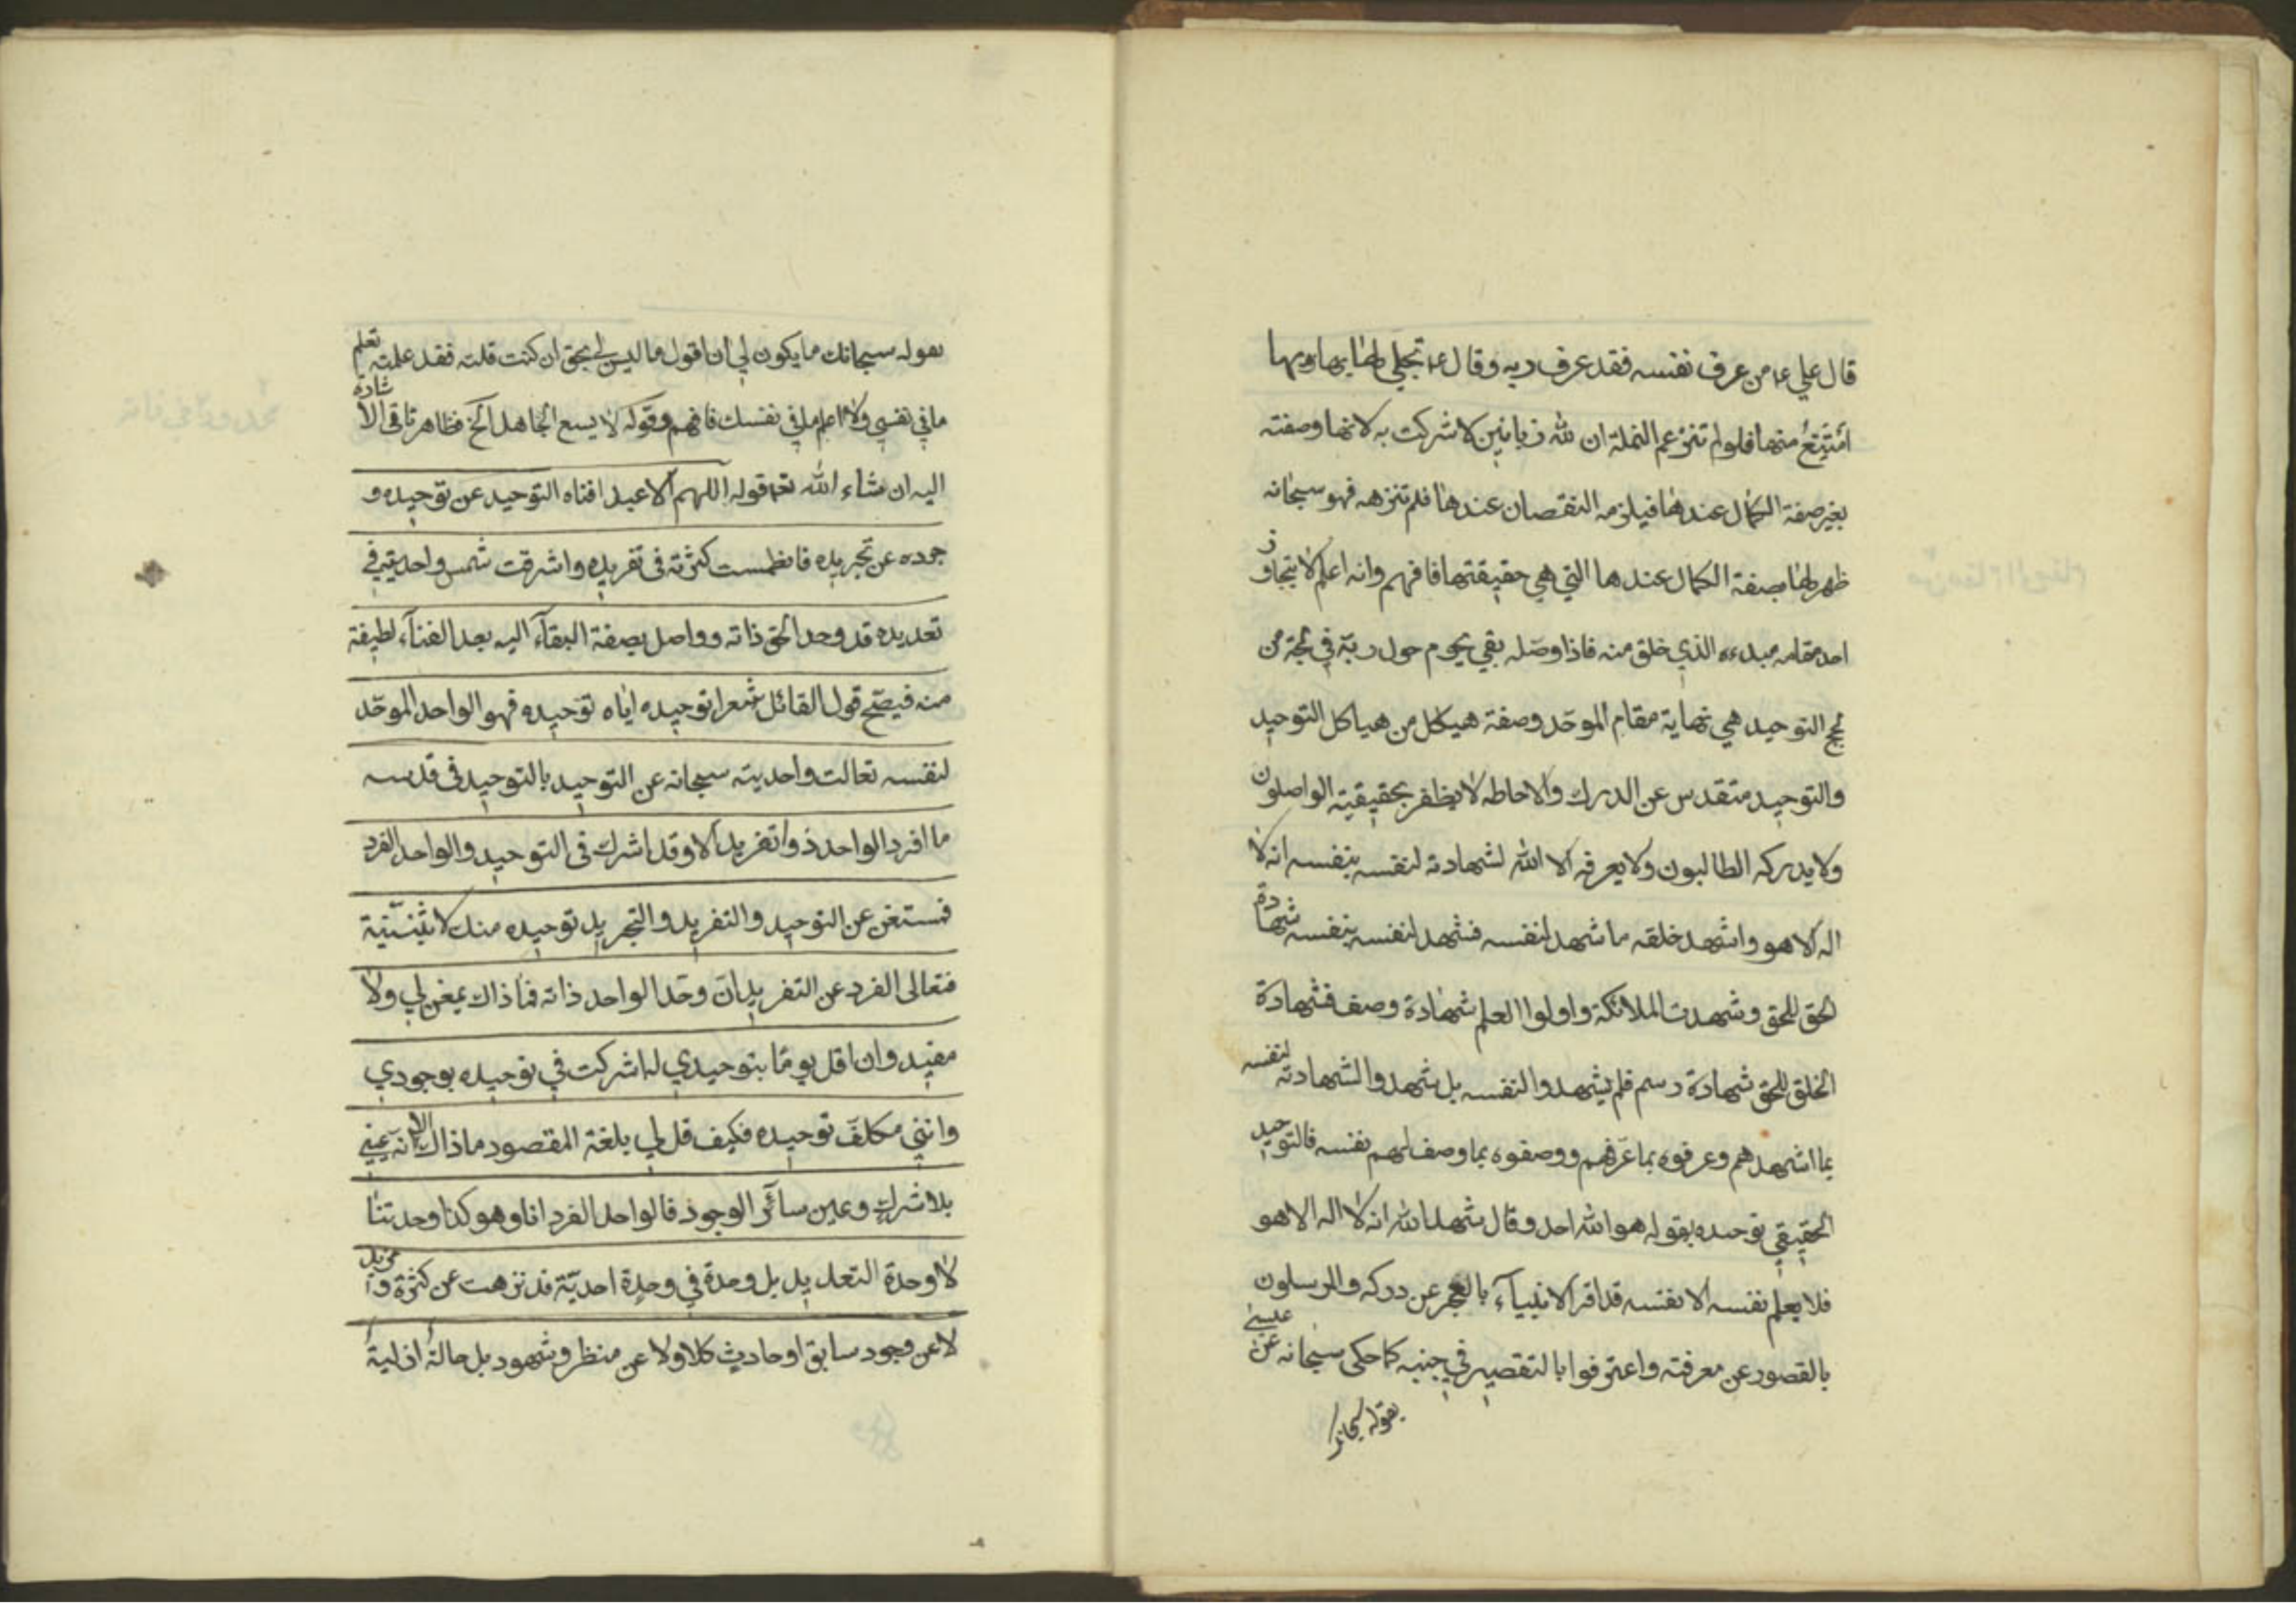 قال علي ع من عرف نفسه فقد عرف ربه وقال ع تجلي لها بها وبها
امتنع منها فلولم تنزعم النملة ان لله زبانين لاشركت به لانها وصفته
بغير صفة الكمال عندها فيلزمه النقصان عندها فلم تنزهه فهو سبحانه
ظهر لها بصفة الكمال عندها التي هي حقيقتها فافهم وانه اعلم لا يتجاوز
احد مقامه مبدءه الذي خلق منه فاذا وصله بقي يحوم حول ربه في لجة من
لجج التوحيد هي نهاية مقام الموحد وصفة هيكل من هياكل التوحيد
والتوحيد متقدس عن الدرك والاحاطه لا يظفر بحقيقيته الواصلون
ولا يدركه الطالبون ولا يعرفه الا الله لشهادته لنفسه بنفسه انه لا
اله الا هو واشهد خلقه ما شهد لنفسه فشهد لنفسه بنفسه شهادة
الحق للحق وشهدت الملائكة واولوا العلم شهادة وصف فشهادة
الخلق للحق شهادة رسم فلم يشهدوا لنفسه بل شهدوا الشهادته لنفسه
بما اشهدهم وعرفوه بما عرفهم ووصفوه بما وصف لهم نفسه فالتوحيد
الحقيقي توحيده بقوله هو الله احد وقال شهد الله انه لا اله الا هو
فلا يعلم نفسه الا نفسه قد اقر الانبياء بالعجز عن دركه والمرسلون
بالقصور عن معرفته واعترفوا بالتقصير في جنبه كما حكى سبحانه عن عيسى
بقوله سبحانك
بقوله سبحانك ما يكون لي ان اقول ما ليس لي بحق ان كنت قلته فقد علمته تعلم
ما في نفسي ولا اعلم ما في نفسك فافهم وقوله لا يسع الجاهل الخ فظاهر تاقى الاشارة
اليه ان شاء الله تعه قوله اللهم الا عبد افناه التوحيد عن توحيده و
جوده عن تجريده فانطمست كثرته في تفريده واشرقت شمس واحديته في
تعديده قد وحد الحق ذاته وواصل بصفة البقاء اليه بعد الفناء لطيفة
منه فيصح قول القائل شعرا توحيده اياه توحيده فهو الواحد الموحد
لنفسه تعالت واحديته سبحانه عن التوحيد بالتوحيد في قدسه
ما افرد الواحد ذوا تفريد الا وقد اشرك في التوحيد والواحد الفرد
فمستغن عن التوحيد والتفريد والتجريد توحيده منك لاثنينية
فتعالى الفرد عن التفريد ان وحد الواحد ذاته فما ذاك بمغن لي ولا
مفيد وان اقل يوما بتوحيدي له اشركت في توحيده بوجودي
وانني مكلف توحيده فكيف قل لي بلغة المقصود ماذاك الا انه عيني
بلا شرك وعين سائر الوجود فالواحد الفرد انا وهو كذا وحدتنا
لا وحدة التعديد بل وحدة في وحدة احدية قد نزهت عن كثرة و مزيد
لا عن وجود سابق او حادث كلا ولا عن منظر وشهود بل حالة ازلية